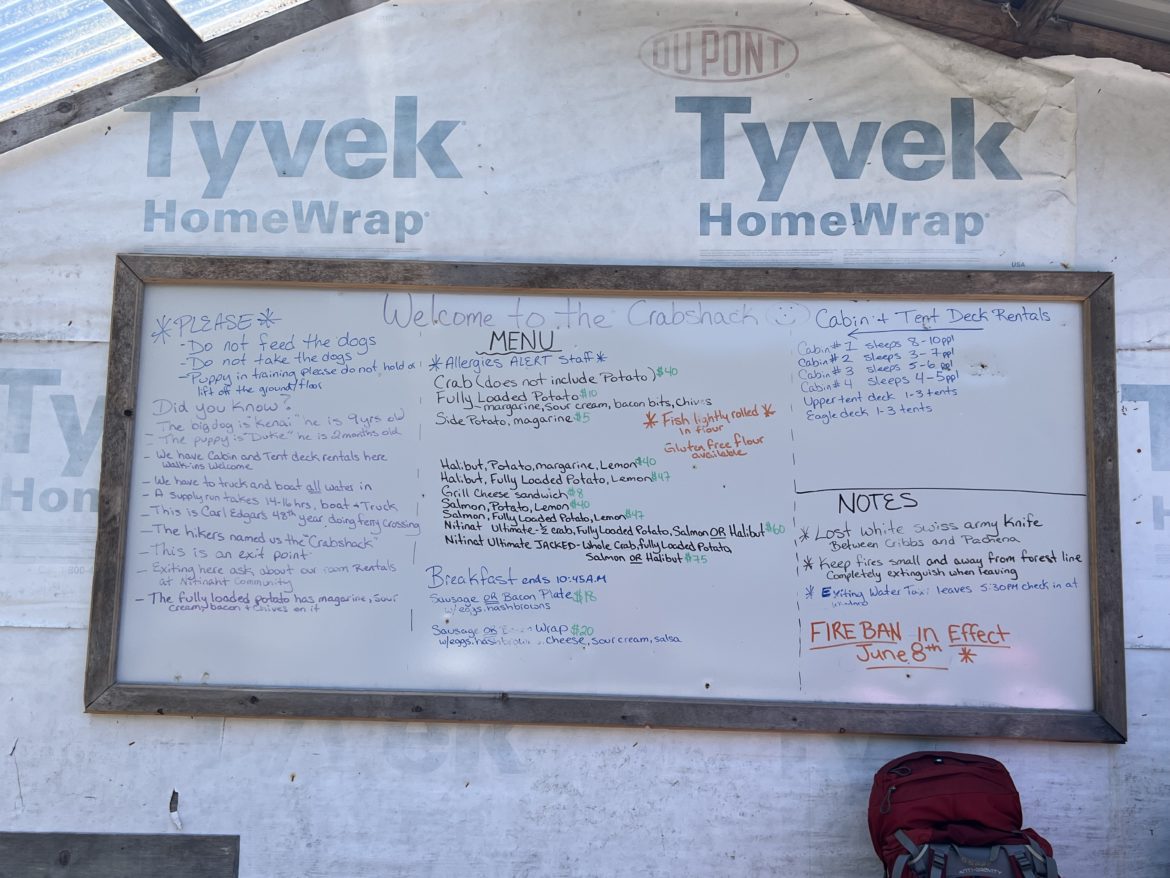 DU PONT
Tyvek
HomeWrap
Tyvek
HomeWrap
USA
Welcome to the Crabshack
*PLEASE*
- Do not feed the dogs
- Do not take the dogs
- Puppy in training please do not, hold or
lift off the ground/floor
Did you know?
- The big dog is "Kenai" he is 9yrs old
- The puppy is "Duke" he is 2 months old
- We have Cabin and Tent deck rentals here
Walk-ins welcome
- We have to truck and boat all water in
- A supply run takes 14-16 hrs, boat + Truck
- This is Carl Edgar's 48th year, doing ferry crossing
- The hikers named us the "Crabshack"
- This is an exit point
- Exiting here ask about our room Rentals
at Nitinaht Community
- The fully loaded potato has magarine, sour
cream, bacon + chives on it
MENU
*Allergies ALERT staff*
Crab (does not include Potato) $40
Fully Loaded Potato $10
- margarine, sour cream, bacon bits, Chives
Side Potato, magarine $5
* Fish lightly rolled *
in flour
Gluten free flour
available
Halibut, Potato, margarine, Lemon $40
Halibut, Fully Loaded Potato, Lemon $47
Grill Cheese sandwich $8
Salmon, Potato, Lemon $40
Salmon, Fully Loaded Potato, Lemon $47
Nitinat Ultimate - ½ crab, Fully Loaded Potato, Salmon OR Halibut $60
Nitinat Ultimate JACKED - Whole Crab, fully Loaded Potato,
Salmon OR Halibut $75
Breakfast ends 10:45A.M
Sausage OR Bacon Plate $18
w/eggs, hashbrowns
Sausage OR Wrap $20
w/eggs, hashbrown, cheese, sour cream, salsa
Cabin + Tent Deck Rentals
Cabin # 1 sleeps 8-10ppl
Cabin # 2 sleeps 3-7ppl
Cabin # 3 sleeps 5-6 ppl
Cabin # 4 sleeps 4-5ppl
Upper tent deck 1-3 tents
Eagle deck 1-3 tents
NOTES
* Lost white swiss army knife
Between Cribbs and Pachena
* Keep fires small and away from forest line
Completely extinguish when leaving
* Exiting Water Taxi leaves 5:30PM check in at
FIRE BAN in Effect
June 8th *